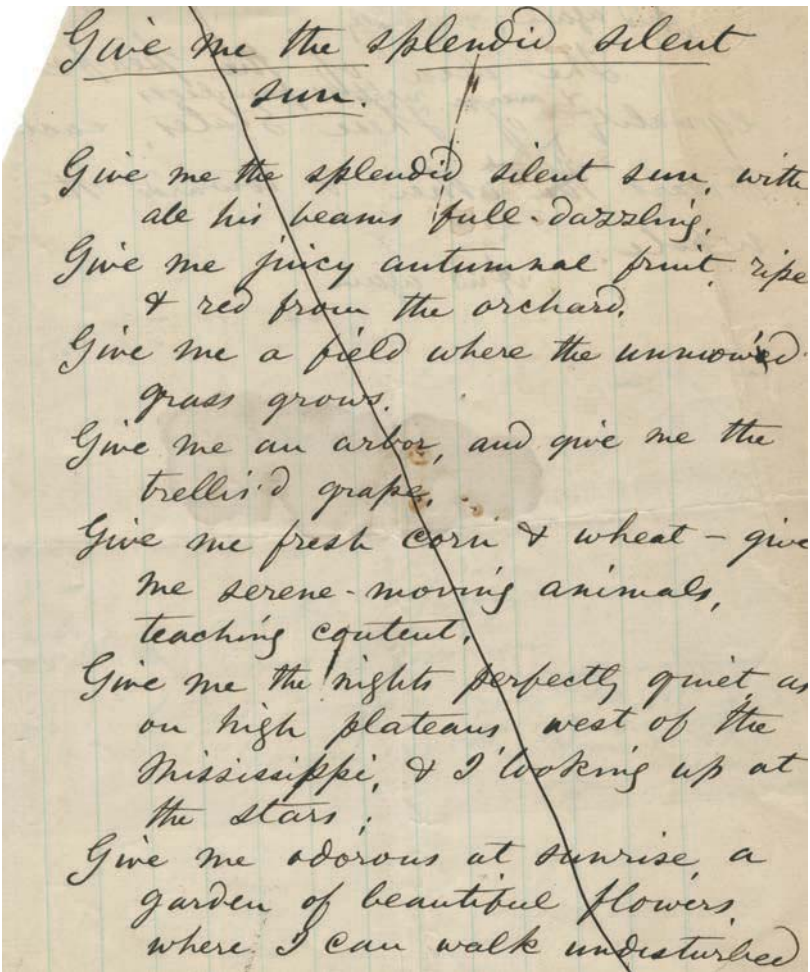 Give me the splendid silent
sun.
Give me the splendid silent sun, with
all his beams full-dazzling,
Give me juicy autumnal fruit, ripe
& red from the orchard,
Give me a field where the unmow'd
grass grows,
Give me an arbor, and give me the
trellis'd grape,
Give me fresh corn & wheat – give
me serene-moving animals,
teaching content,
Give me the nights perfectly quiet, as
on high plateaus west of the
Mississippi, & I looking up at
the stars;
Give me odorous at sunrise a
garden of beautiful flowers
where I can walk undisturbed